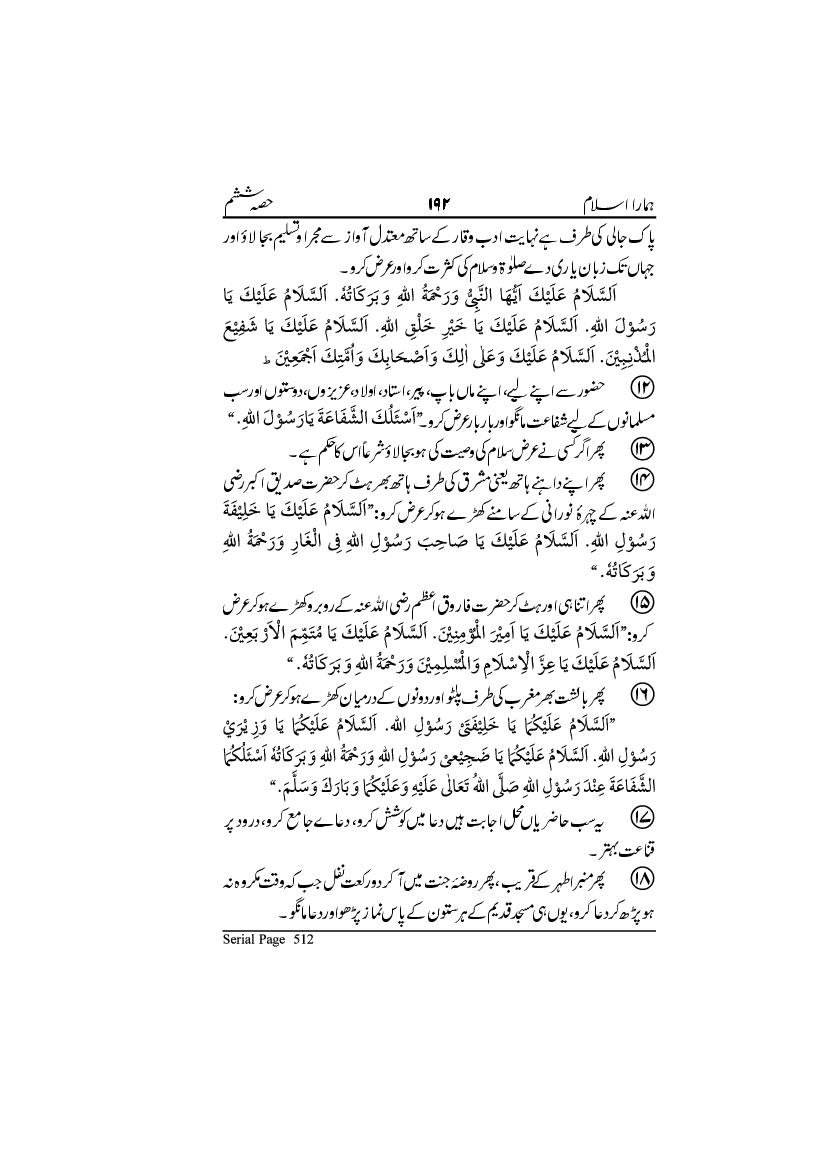 ہمارا اسلام ۱۹۲ حصہ ششم
پاک جالی کی طرف ہے نہایت ادب وقار کے ساتھ معتدل آواز سے مجرا وتسلیم بجا لاؤ اور
جہاں تک زبان یاری دے صلوٰۃ وسلام کی کثرت کرو اور عرض کرو۔
اَلسَّلَامُ عَلَیْكَ اَیُّھَا النَّبِیُّ وَرَحْمَۃُ اللہِ وَبَرَکَاتُہٗ. اَلسَّلَامُ عَلَیْكَ یَا
رَسُوْلَ اللہِ. اَلسَّلَامُ عَلَیْكَ یَا خَیْرِ خَلْقِ اللہِ. اَلسَّلَامُ عَلَیْكَ یَا شَفِیْعَ
الْمُذْنِبِیْنَ. اَلسَّلَامُ عَلَیْكَ وَعَلٰی اٰلِكَ وَاَصْحَابِكَ وَاُمَّتِكَ اَجْمَعِیْنَ ط
⑫ حضور سے اپنے لیے، اپنے ماں باپ، پیر، استاد، اولاد، عزیزوں، دوستوں اور سب
مسلمانوں کے لیے شفاعت مانگو اور بار بار عرض کرو۔”اَسْئَلُكَ الشَّفَاعَۃَ یَارَسُوْلَ اللہِ.“
⑬ پھر اگر کسی نے عرض سلام کی وصیت کی ہو بجالاؤ شرعاً اس کا حکم ہے۔
⑭ پھر اپنے داہنے ہاتھ یعنی مشرق کی طرف ہاتھ بھر ہٹ کر حضرت صدیق اکبر رضی
اللہ عنہ کے چہرۂ نورانی کے سامنے کھڑے ہو کر عرض کرو:”اَلسَّلَامُ عَلَیْكَ یَا خَلِیْفَۃَ
رَسُوْلِ اللہِ. اَلسَّلَامُ عَلَیْكَ یَا صَاحِبَ رَسُوْلِ اللہِ فِی الْغَارِ وَرَحْمَۃُ اللہِ
وَبَرَکَاتُہٗ.“
⑮ پھر اتنا ہی اور ہٹ کر حضرت فاروق اعظم رضی اللہ عنہ کے روبرو کھڑے ہو کر عرض
کرو:”اَلسَّلَامُ عَلَیْكَ یَا اَمِیْرَ الْمُؤْمِنِیْنَ. اَلسَّلَامُ عَلَیْكَ یَا مُتَمِّمَ الْاَرْبَعِیْنَ.
اَلسَّلَامُ عَلَیْكَ یَا عِزَّ الْاِسْلَامِ وَالْمُسْلِمِیْنَ وَرَحْمَۃُ اللہِ وَبَرَکَاتُہٗ.“
⑯ پھر بالشت بھر مغرب کی طرف پلٹو اور دونوں کے درمیان کھڑے ہو کر عرض کرو:
”اَلسَّلَامُ عَلَیْکُمَا یَا خَلِیْفَتَیْ رَسُوْلِ اللہ. اَلسَّلَامُ عَلَیْکُمَا یَا وَزِیْرَيْ
رَسُوْلِ اللہِ. اَلسَّلَامُ عَلَیْکُمَا یَا ضَجِیْعَیْ رَسُوْلِ اللہِ وَرَحْمَۃُ اللہِ وَبَرَکَاتُہٗ اَسْئَلُکُمَا
الشَّفَاعَۃَ عِنْدَ رَسُوْلِ اللہِ صَلَّی اللہُ تَعَالٰی عَلَیْہِ وَعَلَیْکُمَا وَبَارَكَ وَسَلَّمَ.“
⑰ یہ سب حاضریاں محل اجابت ہیں دعا میں کوشش کرو، دعاے جامع کرو، درود پر
قناعت بہتر۔
⑱ پھر منبر اطہر کے قریب، پھر روضۂ جنت میں آکر دو رکعت نفل جب کہ وقت مکروہ نہ
ہو پڑھ کر دعا کرو، یوں ہی مسجد قدیم کے ہر ستون کے پاس نماز پڑھو اور دعا مانگو۔
Serial Page 512